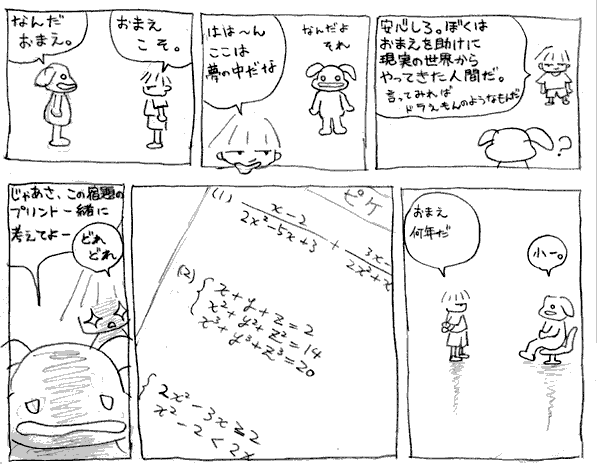 なんだ
おまえ。
おまえ
こそ。
はは〜ん
ここは
夢の中だな
なんだよ
それ
安心しろ。ぼくは
おまえを助けに
現実の世界から
やってきた人間だ。
言ってみれば
ドラえもんのようなもんだ
?
じゃあさ、この宿題の
プリント一緒に
考えてよー
どれ
どれ
ピケ
(1) x-2/2x²-5x+3 + 3x-/2x²+x
(2) { x+y+z=2
x²+y²+z²=14
x³+y³+z³=20
{ 2x²-3x≧2
x²-2<2x
おまえ
何年だ
小一。